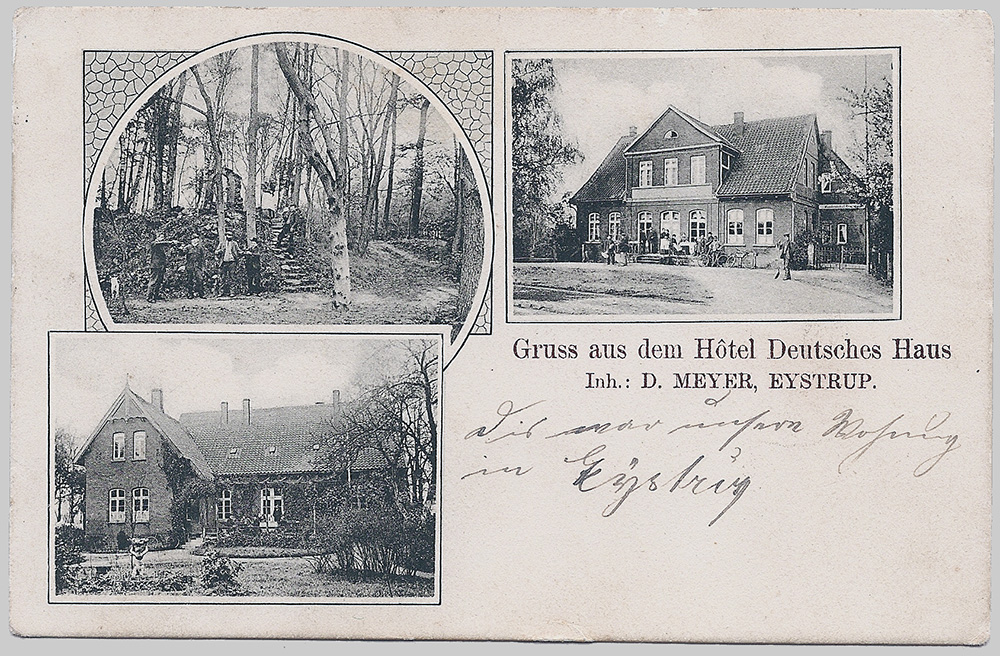 Gruss aus dem Hôtel Deutsches Haus
Inh.: D. MEYER, EYSTRUP.
Dis war unsere Wohnung
in Eystrup